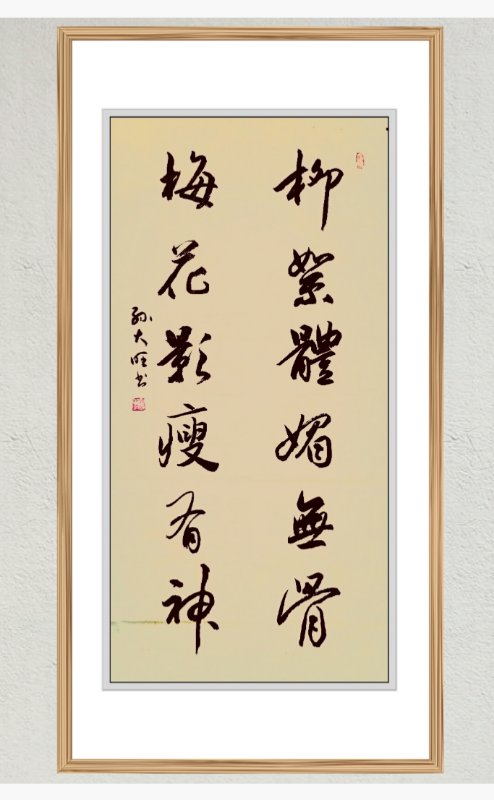 柳絮體媚無骨
梅花影瘦有神
孫大旺书